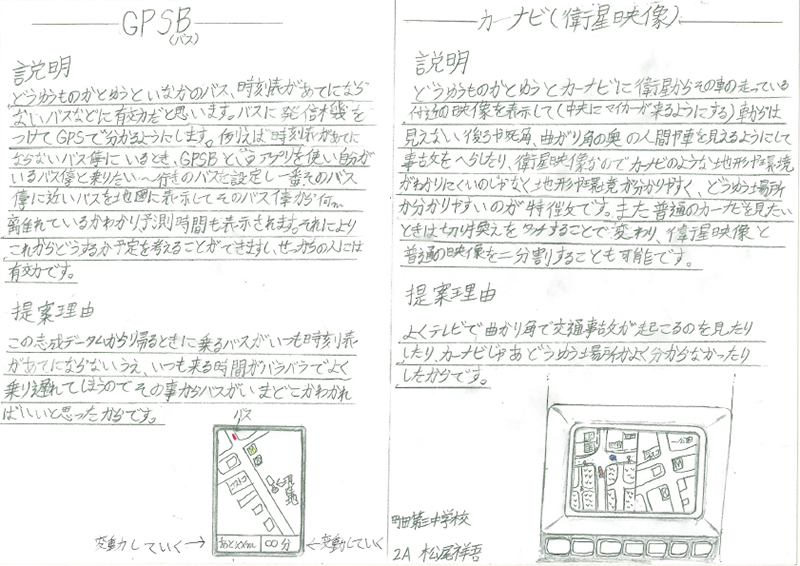 GPSB
(バス)
説明
どうゆうものかとゆうといなかのバス、時刻表があてになら
ないバスなどに有効だと思います。バスに発信機を
つけてGPSで分かるようにします。例えば時刻表があてに
ならないバス停にいるとき、GPSBと言うアプリを使い自分が
いるバス停と乗りたい〜行きのバスを設定し一番そのバス
停に近いバスを地図に表示してそのバス停から何m
離れているかわかり予測時間も表示されます。それにより
これからどうするか予定を考えることができますし、せっかちの人には
有効です。
提案理由
この志成データムから帰るときに乗るバスがいつも時刻表
があてにならないうえ、いつも来る時間がバラバラでよく
乗り遅れてしまうのでその事からバスがいまどこかわかれ
ばいいと思ったからです。
バス
現在地
変動していく→
あと××m
○○分
←変動していく
カーナビ(衛星映像)
説明
どうゆうものかとゆうとカーナビに衛星からその車の走っている
付近の映像を表示して(中央にマイカーが来るようにする)車からは
見えない後ろや死角、曲がり角の奥の人間や車を見えるようにして
事故をへらしたり、衛星映像なのでカーナビのような地形や環境
がわかりにくいのじゃなく地形や環境が分かりやすく、どうゆう場所
か分かりやすいのが特徴です。また普通のカーナビを見たい
ときは切り替えをタッチすることで変わり、衛星映像と
普通の映像を二分割することも可能です。
提案理由
よくテレビで曲がり角で交通事故が起こるのを見たり
したり、カーナビじゃあどうゆう場所かよく分からなかったり
したからです。
町田第三中学校
2A 松尾祥吾